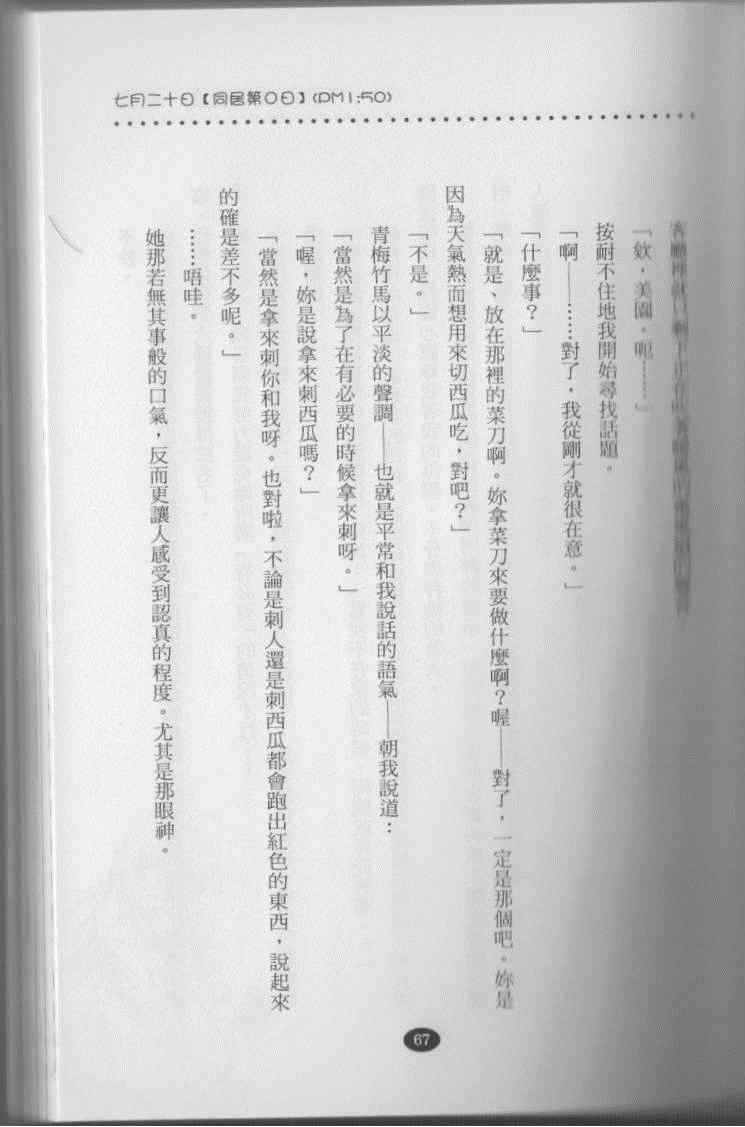 七月二十日【同居第０日】(PM1:50)
「欸，美園。呃……」
按耐不住地我開始尋找話題。
「啊——……對了，我從剛才就很在意。」
「什麼事？」
「就是、放在那裡的菜刀啊。妳拿菜刀來要做什麼啊？喔——對了，一定是那個吧。妳是
因為天氣熱而想用來切西瓜吃，對吧？」
「不是。」
青梅竹馬以平淡的聲調——也就是平常和我說話的語氣——朝我說道：
「當然是為了在有必要的時候拿來刺呀。」
「喔，妳是說拿來刺西瓜嗎？」
「當然是拿來刺你和我呀。也對啦，不論是刺人還是刺西瓜都會跑出紅色的東西，說起來
的確是差不多呢。」
……唔哇。
她那若無其事般的口氣，反而更讓人感受到認真的程度。尤其是那眼神。
67